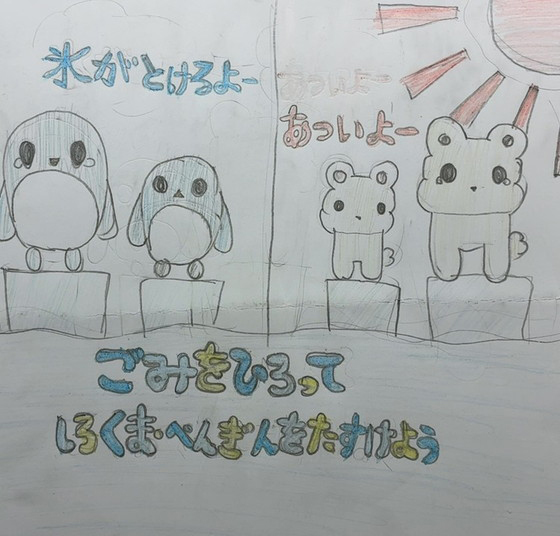 氷がとけろよー
あついよー
あついよー
ごみをひろって
しろくまぺんぎんをたすけよう